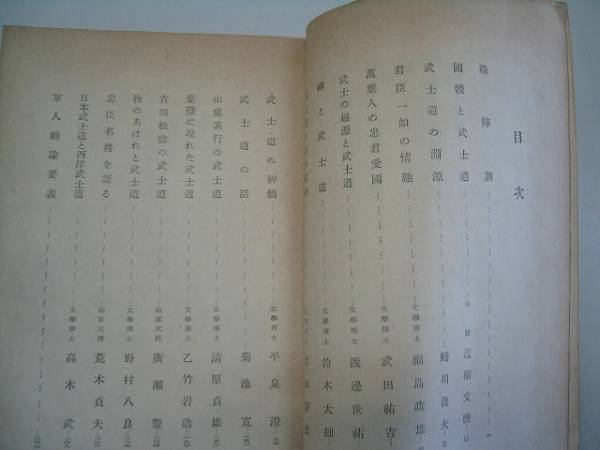 目次
戰陣訓
國體と武士道 公爵 近衞文麿
武士道の淵源 蜷川龍夫
君臣一如の情趣 文學博士 福島政雄
萬葉人の忠君愛國 文學博士 武田祐吉
武士の起源と武士道 文學博士 渡邊世祐
禪と武士道 文學博士 鈴木大拙
武士道の神髓 文學博士 平泉澄
武士道の話 菊池寬
山鹿素行の武士道 文學博士 清原貞雄
葉隱に現れた武士道 文學博士 乙竹岩造
吉田松陰の武士道 廣瀨豐
物のあはれと武士道 文學博士 野村八良
忠臣名將を語る 陸軍大將 荒木貞夫
日本武士道と西洋武士道 文學博士 高木武
軍人勅諭要義